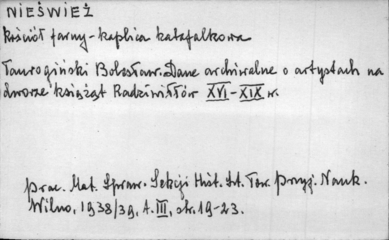 NIEŚWIEŻ
kościół farny - kaplica katafalkowa
Taurogiński Bolesław. Dane archiwalne o artystach na
dworze książąt Radziwiłłów XVI-XIX w.
Prac. Mat. Spraw. Sekcji Hist. Szt. Tow. Przyj. Nauk.
Wilno, 1938/39, t. III, str. 19-23.